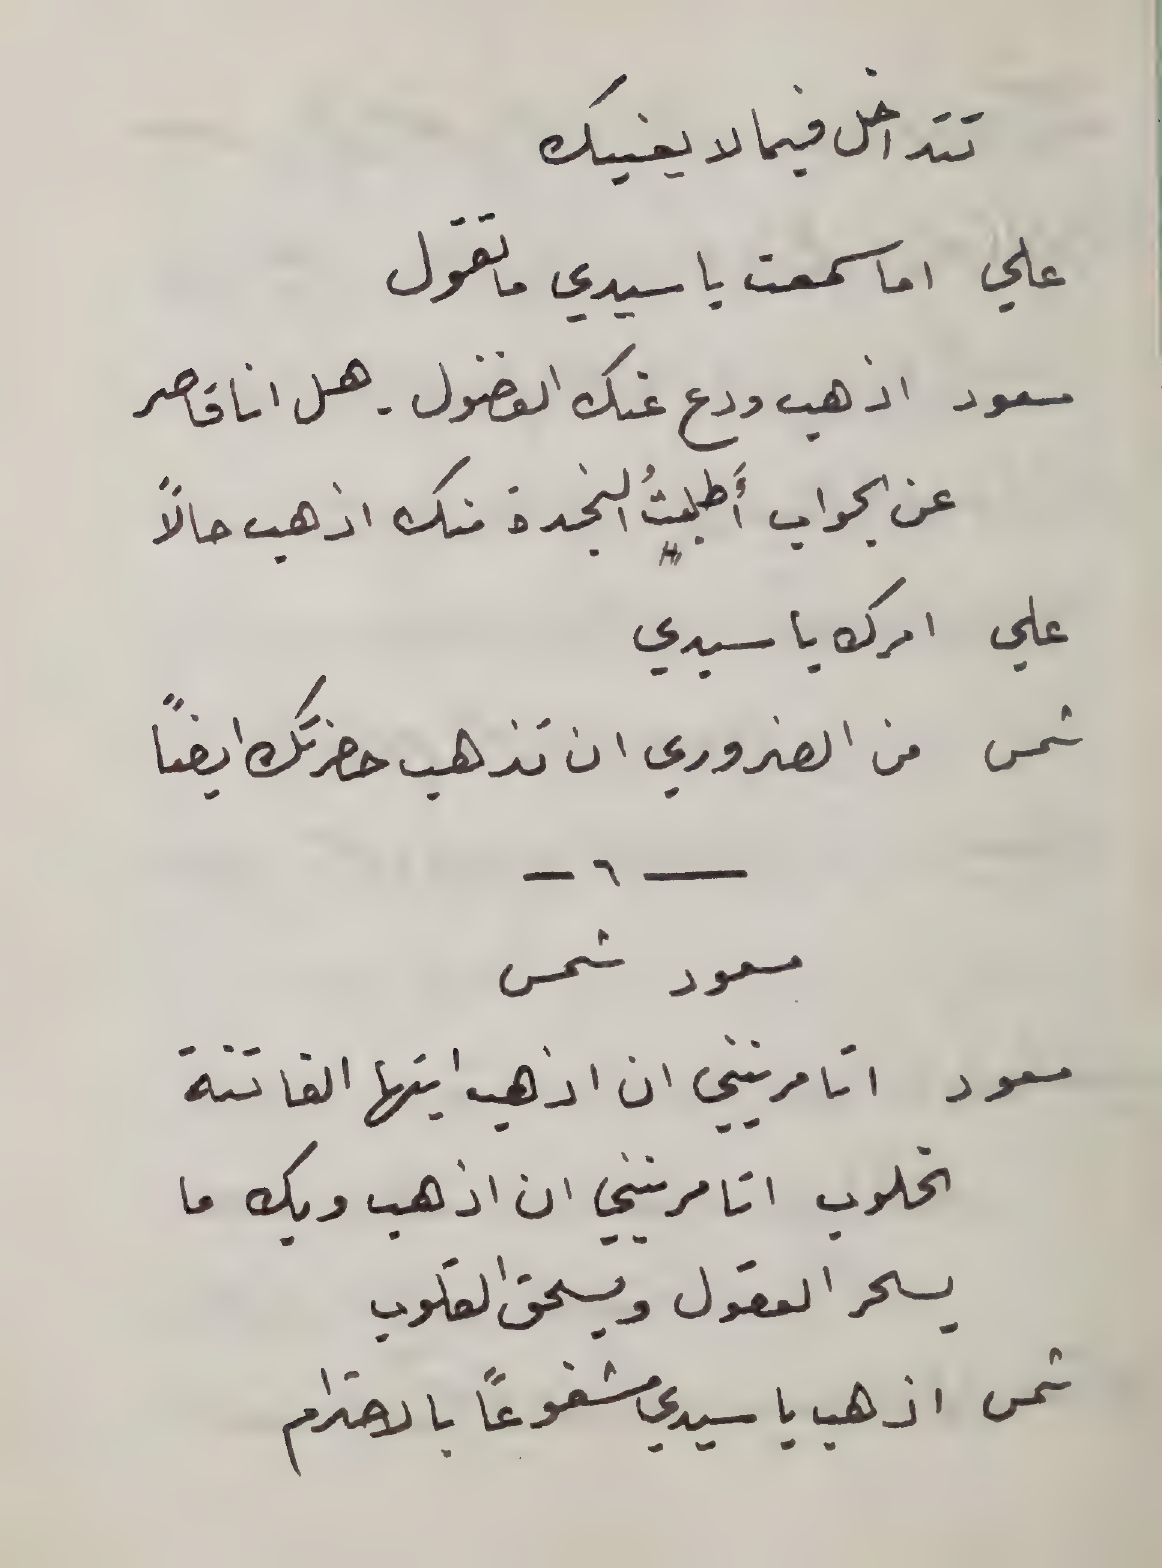 تتداخل فيما لا يعنيك
علي اما سمعت يا سيدي ما تقول
مسعود اذهب ودع عنك الفضول - هل انا قاصر
عن الجواب أَطلبتُ النجدة منك اذهب حالاً
علي امرك يا سيدي
شمس من الضروري ان تذهب حضرتك ايضاً
— ٦ —
مسعود شمس
مسعود اتامرينني ان اذهب ايتها الفاتنة
الخلوب اتامرينني ان اذهب وبك ما
يسحر العقول ويسحق القلوب
شمس اذهب يا سيدي مشفوعاً بالاحترام